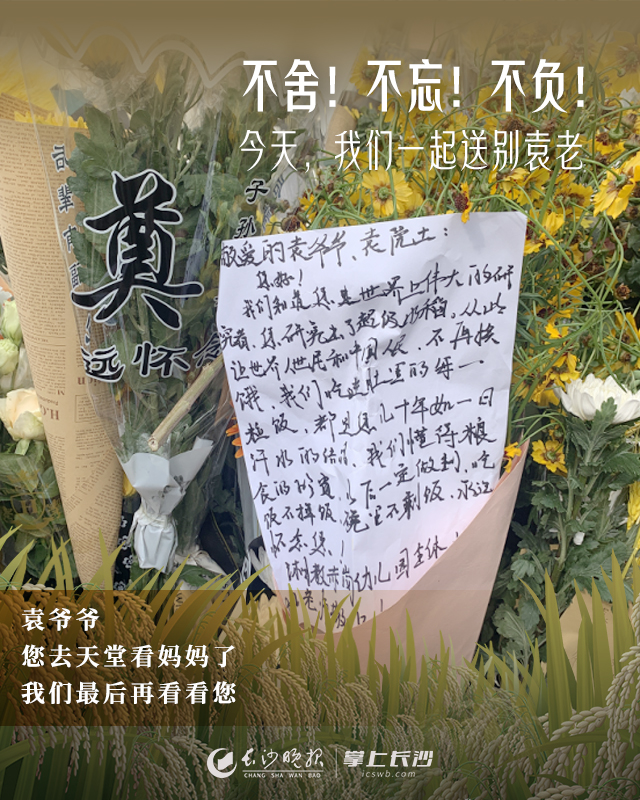 不舍！不忘！不负！
今天，我们一起送别袁老
奠
远怀念
子孙
敬爱的袁爷爷、袁院士：
您好！
我们知道您是世界上伟大的研
究者，您研究出了超级水稻。从此
让世界人民和中国人不再挨
饿，我们吃进肚里的每一
粒饭，都是您几十年如一日
汗水的结晶，我们懂得粮
食的珍贵，以后一定做到，吃
饭不掉饭，碗里不剩饭，永远
怀念您！
幼儿园全体
袁爷爷
您去天堂看妈妈了
我们最后再看看您
长沙晚报
CHANG SHA WAN BAO
掌上长沙
icswb.com